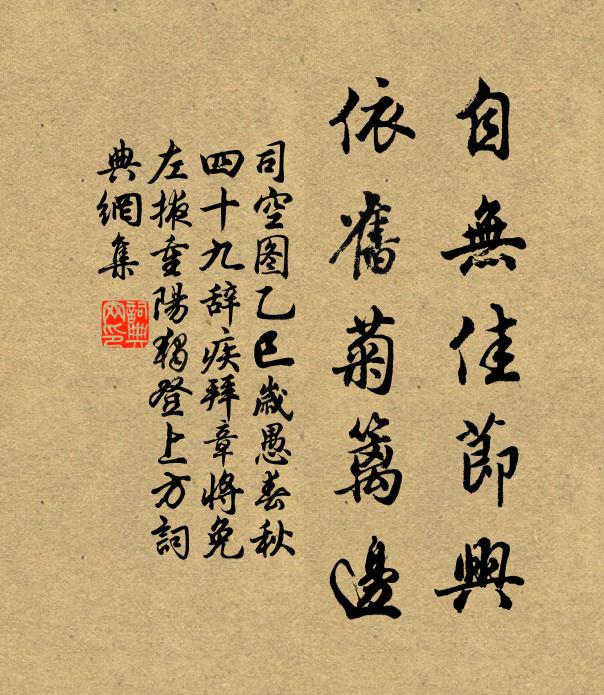 自無佳節興
依舊菊籬邊
司空图乙巳歲愚春秋
四十九辞疾拜章將免
左掖重陽獨登上方詞
典網集
詞典
网印